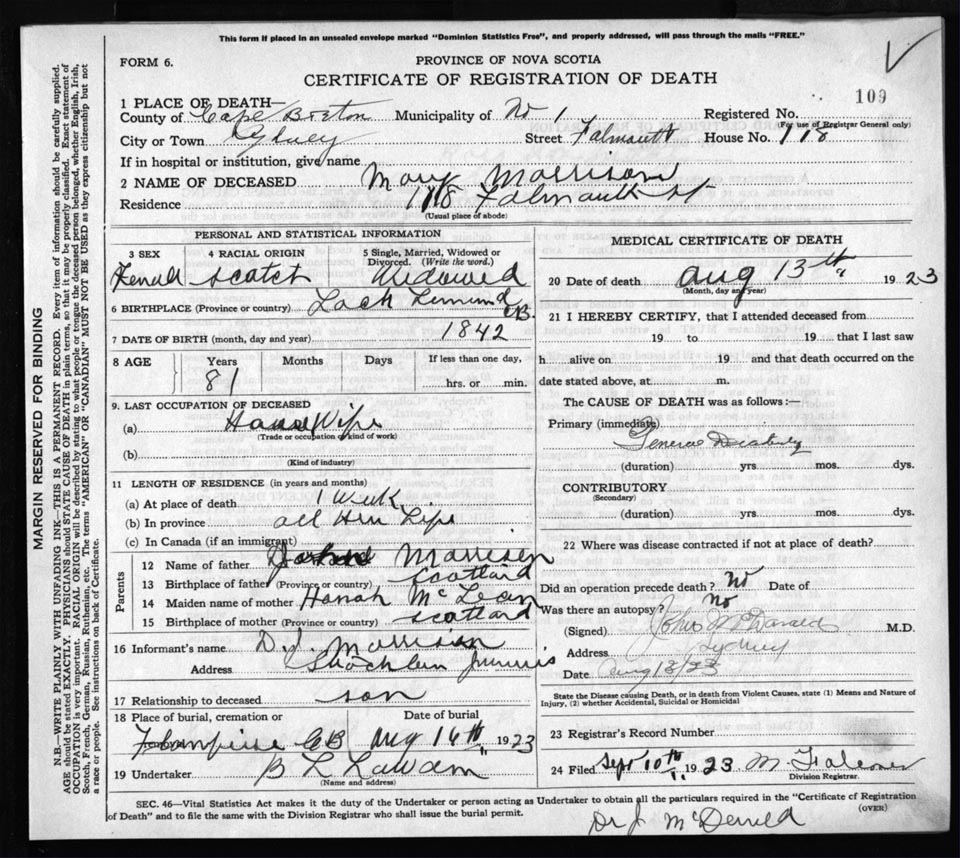 This form if placed in an unsealed envelope marked "Dominion Statistics Free", and properly addressed, will pass through the mails "FREE."
FORM 6.
PROVINCE OF NOVA SCOTIA
CERTIFICATE OF REGISTRATION OF DEATH
109
1 PLACE OF DEATH—
County of Cape Breton Municipality of No 1 Registered No.
(For use of Registrar General only)
City or Town Sydney Street Falmouth House No. 118
If in hospital or institution, give name
2 NAME OF DECEASED Mary Morrison
Residence 118 Falmouth St
(Usual place of abode)
PERSONAL AND STATISTICAL INFORMATION
3 SEX 4 RACIAL ORIGIN 5 Single, Married, Widowed or Divorced. (Write the word.)
Female Scotch Widowed
6 BIRTHPLACE (Province or country) Loch Lomond CB.
7 DATE OF BIRTH (month, day and year) 1842
8 AGE Years Months Days If less than one day,
81 hrs. or min.
9. LAST OCCUPATION OF DECEASED
(a) House Wife
(Trade or occupation or kind of work)
(b)
(Kind of industry)
11 LENGTH OF RESIDENCE (in years and months)
(a) At place of death 1 Week
(b) In province all Her Life
(c) In Canada (if an immigrant)
Parents
12 Name of father Morrison
13 Birthplace of father (Province or country) Scotland
14 Maiden name of mother Hanah McLean
15 Birthplace of mother (Province or country) Scotland
16 Informant's name D.J. Morrison
Address
17 Relationship to deceased son
18 Place of burial, cremation or Date of burial
CB Aug 16th 1923
19 Undertaker
(Name and address)
MEDICAL CERTIFICATE OF DEATH
20 Date of death Aug 13th 1923
(Month, day and year)
21 I HEREBY CERTIFY, that I attended deceased from
19 to 19 that I last saw
h alive on 19 and that death occurred on the
date stated above, at m.
The CAUSE OF DEATH was as follows:—
Primary (immediate)
General Debility
(duration) yrs mos. dys.
CONTRIBUTORY
(Secondary)
(duration) yrs. mos. dys.
22 Where was disease contracted if not at place of death?
Did an operation precede death? No Date of
Was there an autopsy? No
(Signed) John McDonald M.D.
Address Sydney
Date Aug 13/23
State the Disease causing Death, or in death from Violent Causes, state (1) Means and Nature of
Injury, (2) whether Accidental, Suicidal or Homicidal
23 Registrar's Record Number
24 Filed Sept 10th 1923 M. Falconer
Division Registrar.
SEC. 46—Vital Statistics Act makes it the duty of the Undertaker or person acting as Undertaker to obtain all the particulars required in the "Certificate of Registration
of Death" and to file the same with the Division Registrar who shall issue the burial permit.
(OVER)
Dr J.
MARGIN RESERVED FOR BINDING
N.B.—WRITE PLAINLY WITH UNFADING INK—THIS IS A PERMANENT RECORD. Every item of information should be carefully supplied.
AGE should be stated EXACTLY. PHYSICIANS should STATE CAUSE OF DEATH in plain terms, so that it may be properly classified. Exact statement of
OCCUPATION is very important. RACIAL ORIGIN will be described by stating to what people or tongue the deceased person belonged, whether English, Irish,
Scotch, French, German, Russian, Ruthenian, etc. The terms "AMERICAN" OR "CANADIAN" MUST NOT BE USED as they express citizenship but not
a race or people. See instructions on back of Certificate.